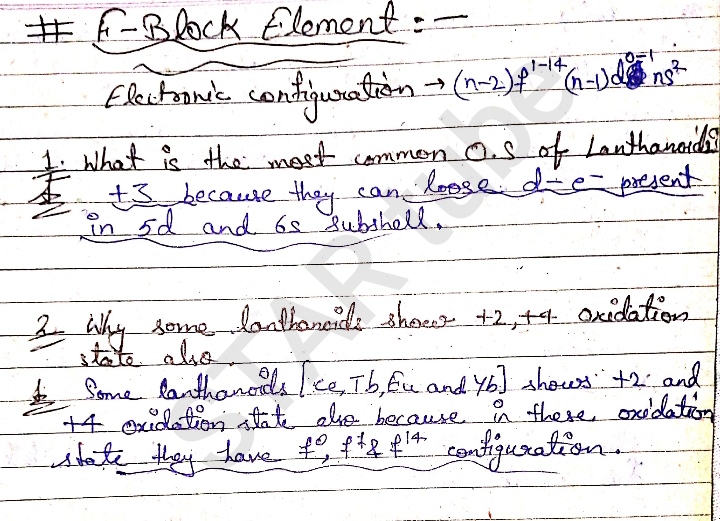 # F-Block Element :-
Electronic configuration → (n-2)f¹⁻¹⁴ (n-1)d⁰⁻¹ ns²
1. What is the most common O.S of Lanthanoids?
+3 because they can loose d-e⁻ present
in 5d and 6s subshell.
2 Why some lanthanoids shows +2, +4 oxidation
state also.
Some lanthanoids [Ce, Tb, Eu and Yb] shows +2 and
+4 oxidation state also because in these oxidation
state they have f⁰, f⁷ & f¹⁴ configuration.
STAR tube